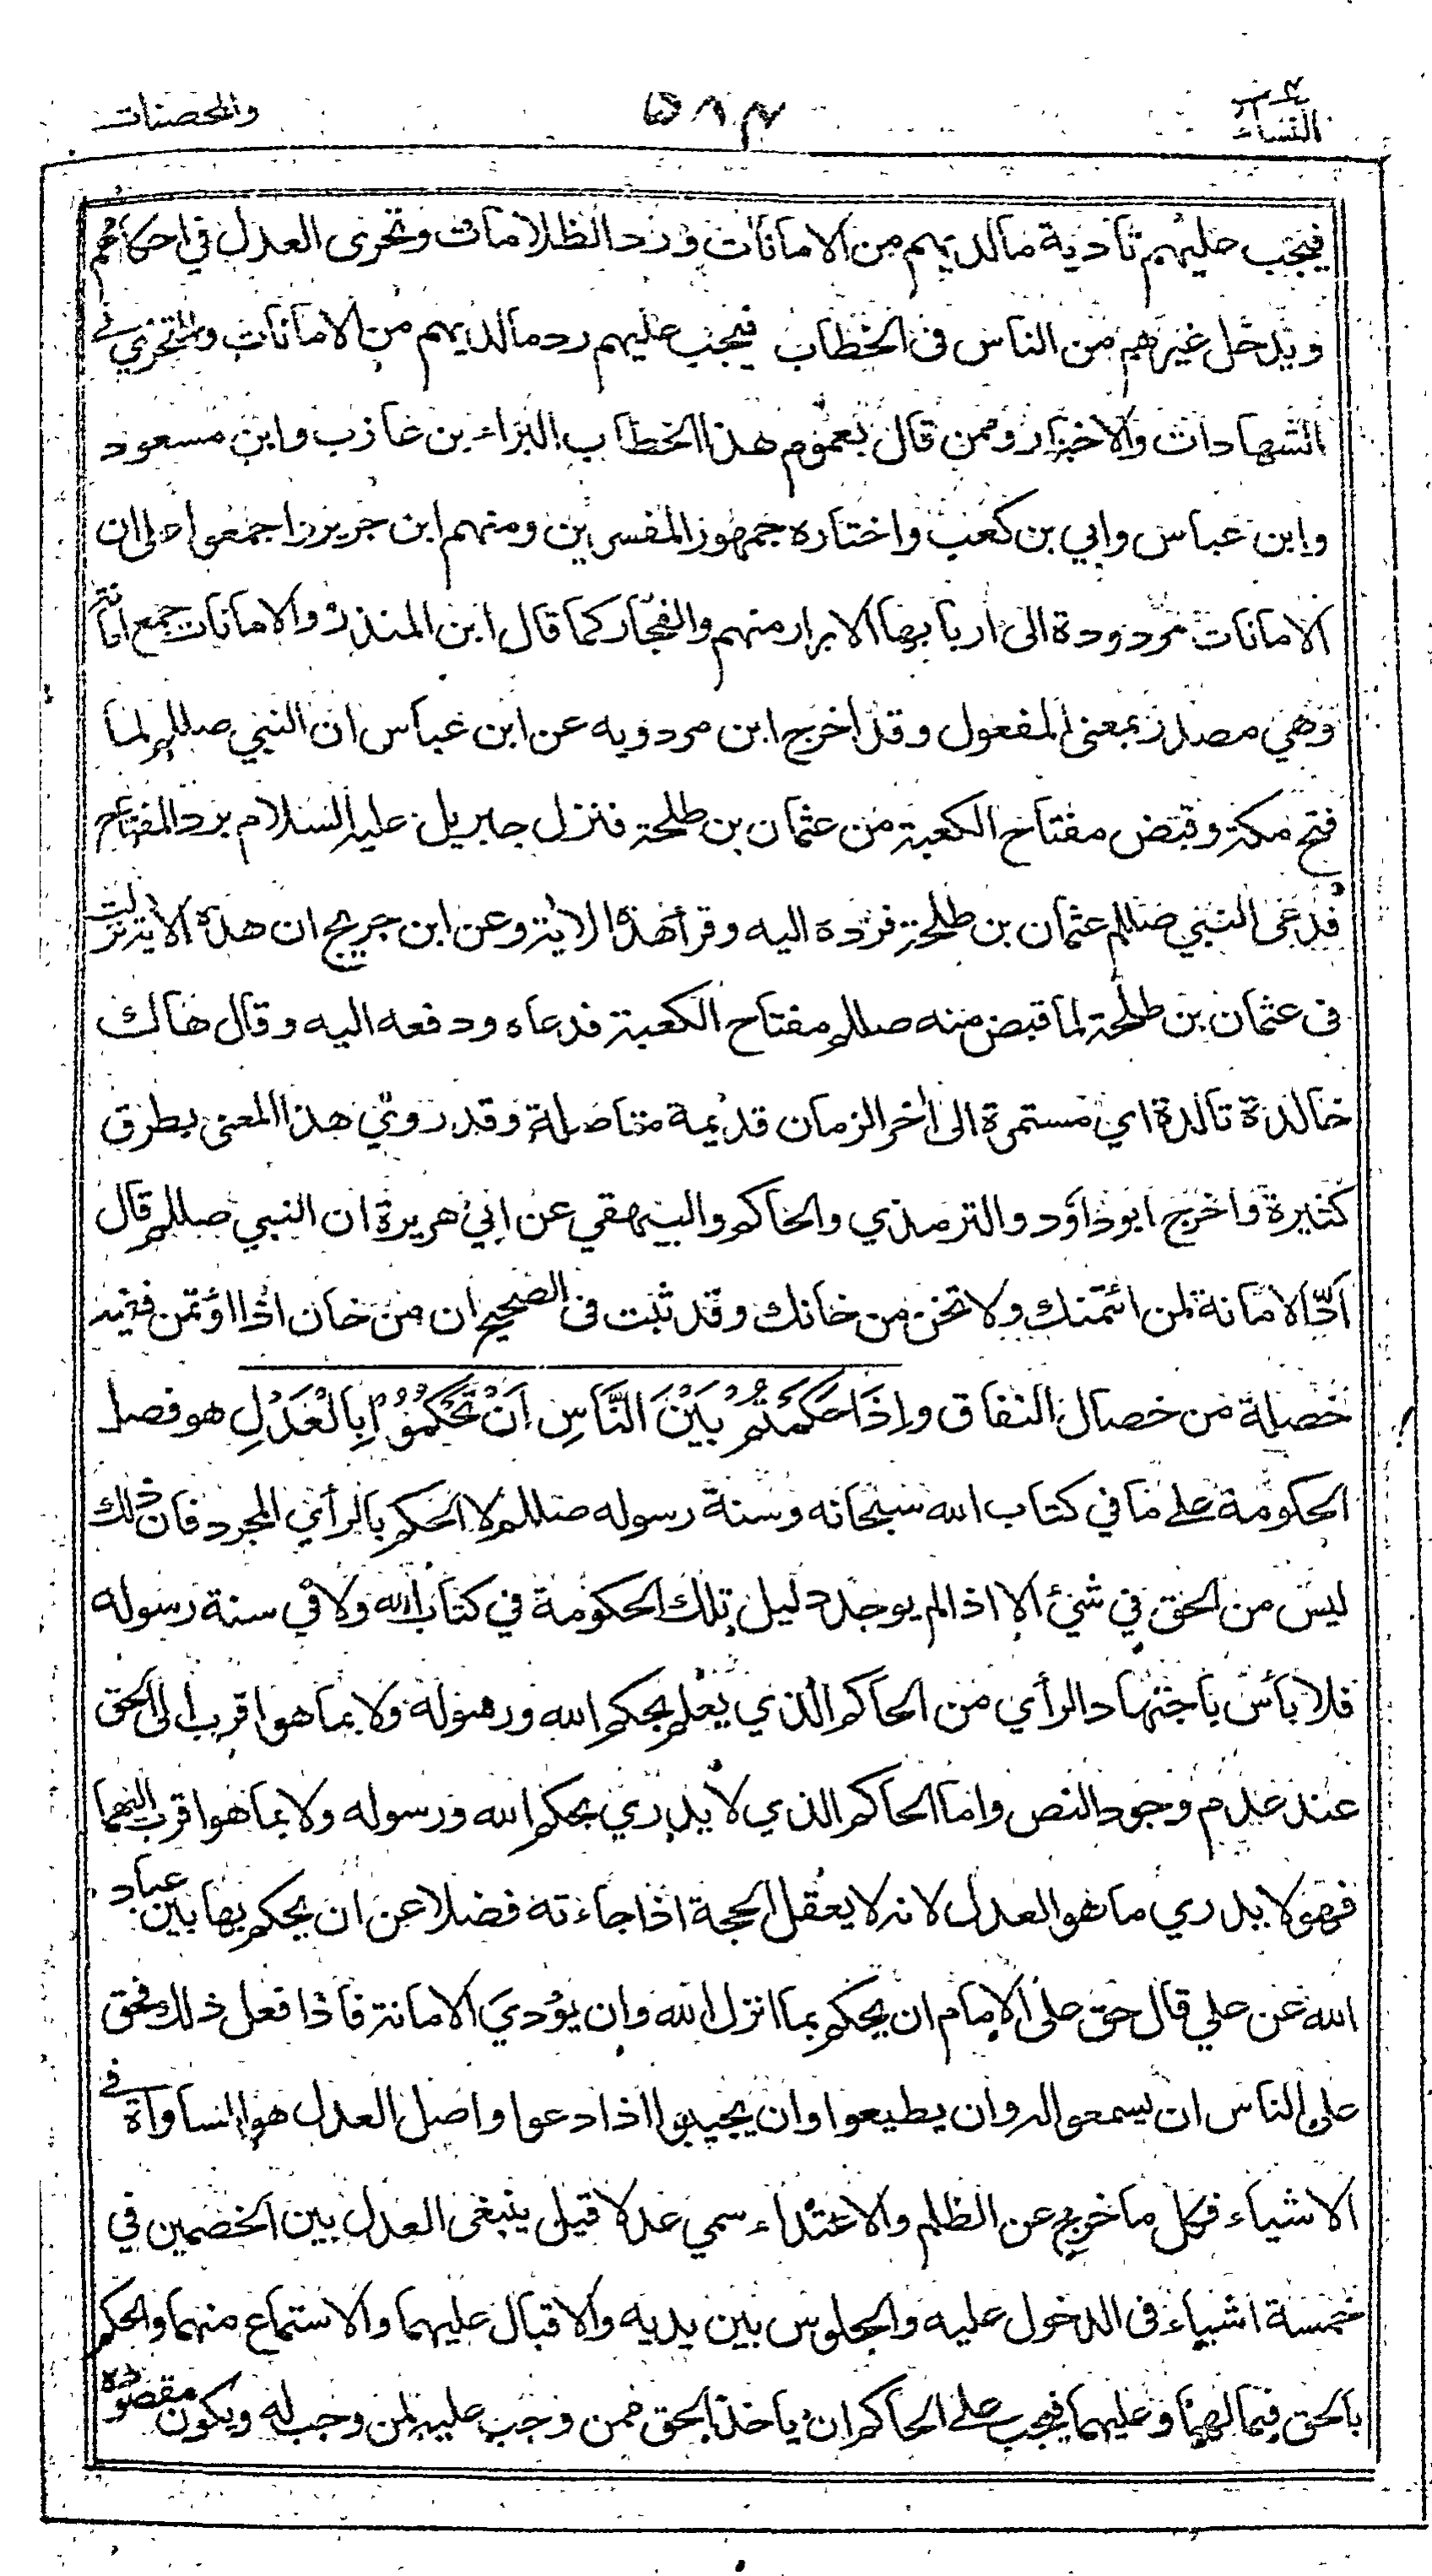 النساء ٥٨٢ والمحصنات
فيجب عليهم تأدية ما لديهم من الامانات ورد الظلامات وتحرى العدل في احكامهم
ويدخل غيرهم من الناس فى الخطاب فيجب عليهم رد ما لديهم من الامانات والتحري في
الشهادات والاخبار وممن قال بعموم هذا الخطاب البراء بن عازب وابن مسعود
وابن عباس وابي بن كعب واختاره جمهور المفسرين ومنهم ابن جرير واجمعوا على ان
الامانات مردودة الى اربابها الابرار منهم والفجار كما قال ابن المنذر والامانات جمع امانة
وهي مصدر بمعنى المفعول وقد اخرج ابن مردويه عن ابن عباس ان النبي صللم لما
فتح مكة وقبض مفتاح الكعبة من عثمان بن طلحة فنزل جبريل عليه السلام برد المفتاح
فدعى النبي صللم عثمان بن طلحة فرده اليه وقرأ هذه الاية وعن ابن جريج ان هذه الاية نزلت
فى عثمان بن طلحة لما قبض منه صللم مفتاح الكعبة فدعاه ودفعه اليه وقال هاك
خالدة تالدة اي مستمرة الى اخر الزمان قديمة متاصلة وقد روي هذا المعنى بطرق
كثيرة واخرج ابوداود والترمذي والحاكم والبيهقي عن ابي هريرة ان النبي صللم قال
ادّ الامانة لمن ائتمنك ولا تخن من خانك وقد ثبت فى الصحيح ان من خان اذا اؤتمن ففيه
خصلة من خصال النفاق واِذَا حَكَمْتُمْ بَيْنَ النَّاسِ اَنْ تَحْكُمُوْا بِالْعَدْلِ هو فصل
الحكومة على ما في كتاب الله سبحانه وسنة رسوله صللم لا الحكم بالرأي المجرد فان ذلك
ليس من الحق في شئ الا اذا لم يوجد دليل تلك الحكومة في كتاب الله ولا في سنة رسوله
فلا بأس باجتهاد الرأي من الحاكم الذي يعلم بحكم الله ورسوله ولا بما هو اقرب الى الحق
عند عدم وجود النص واما الحاكم الذي لا يدري بحكم الله ورسوله ولا بما هو اقرب اليهما
فهو لا يدري ما هو العدل لانه لا يعقل الحجة اذا جاءته فضلا عن ان يحكم بها بين عباد
الله عن علي قال حق على الامام ان يحكم بما انزل الله وان يؤدي الامانة فاذا فعل ذلك فحق
على الناس ان يسمعوا له وان يطيعوا وان يجيبوا اذا دعوا واصل العدل هو المساواة في
الاشياء فكل ما خرج عن الظلم والاعتداء سمي عدلا قيل ينبغى العدل بين الخصمين في
خمسة اشياء فى الدخول عليه والجلوس بين يديه والاقبال عليهما والاستماع منهما والحكم
بالحق فيما لهما وعليهما فيجب على الحاكم ان ياخذ الحق ممن وجب عليه لمن وجب له ويكون مقصوده